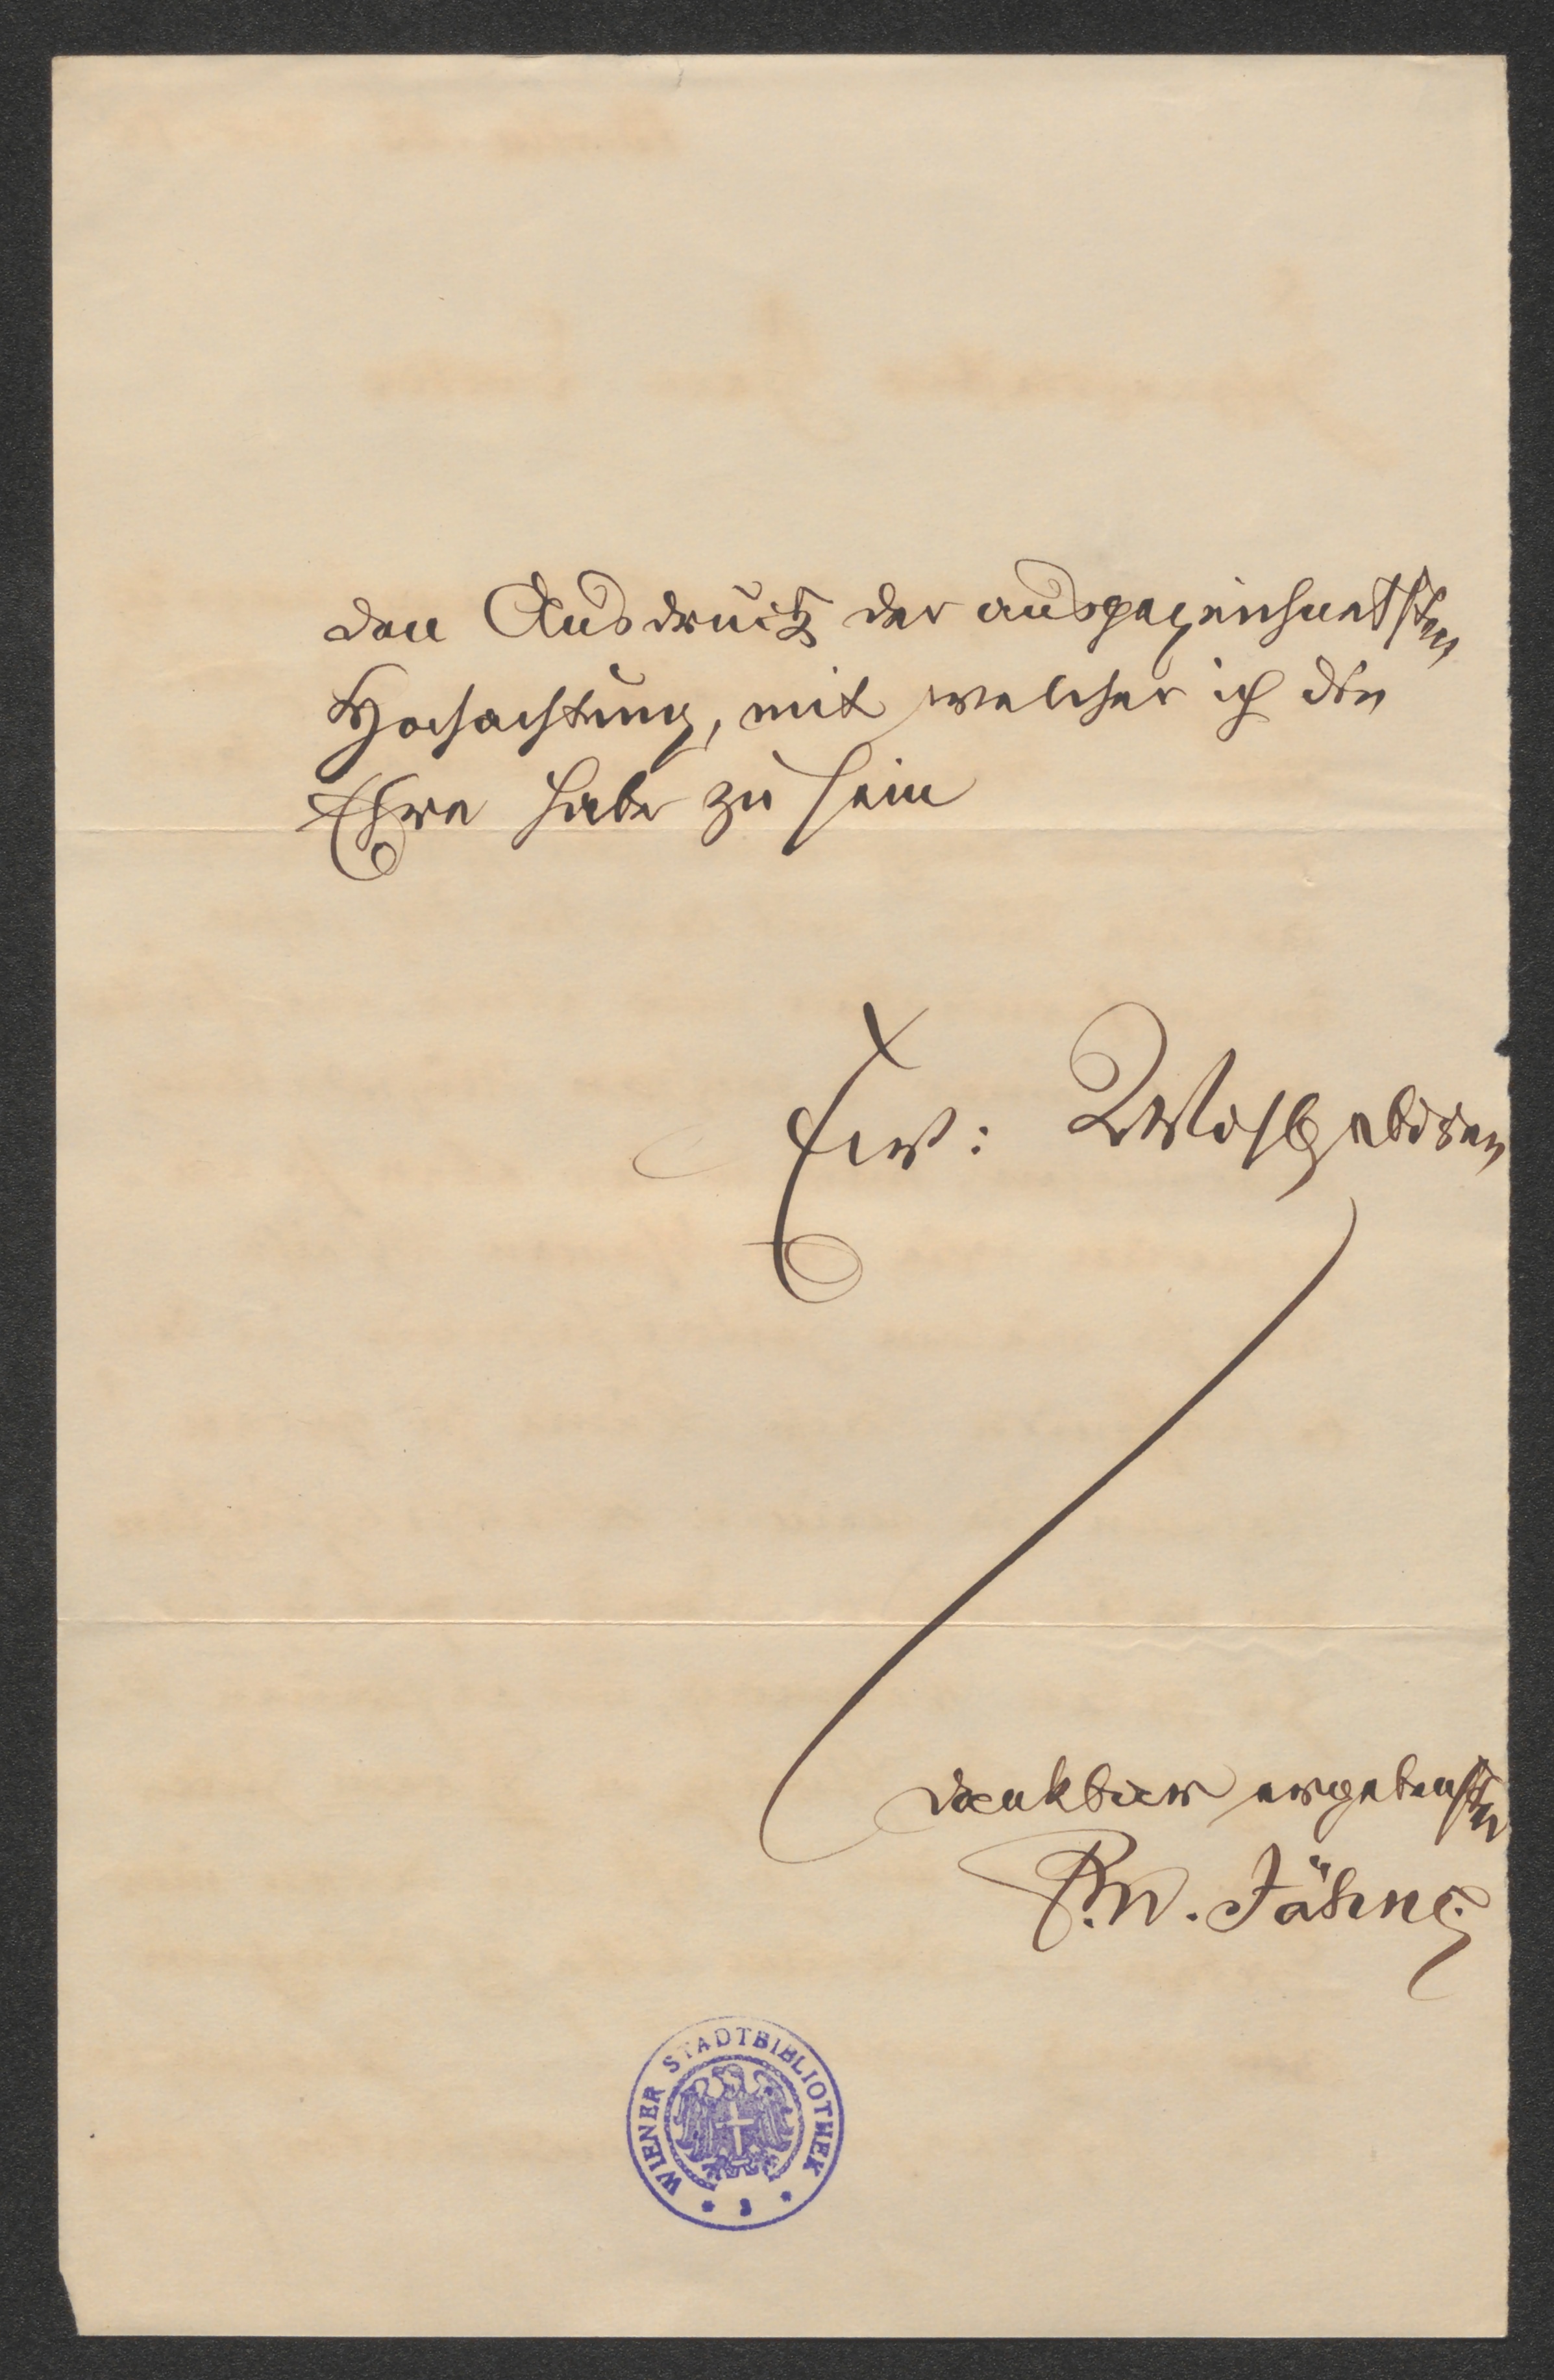 den Ausdruck der ausgezeichnetsten
Hochachtung, mit welcher ich die
Ehre habe zu sein
Ew: Wohlgeboren
dankbar ergebenster
F. W. Jähns
WIENER STADTBIBLIOTHEK